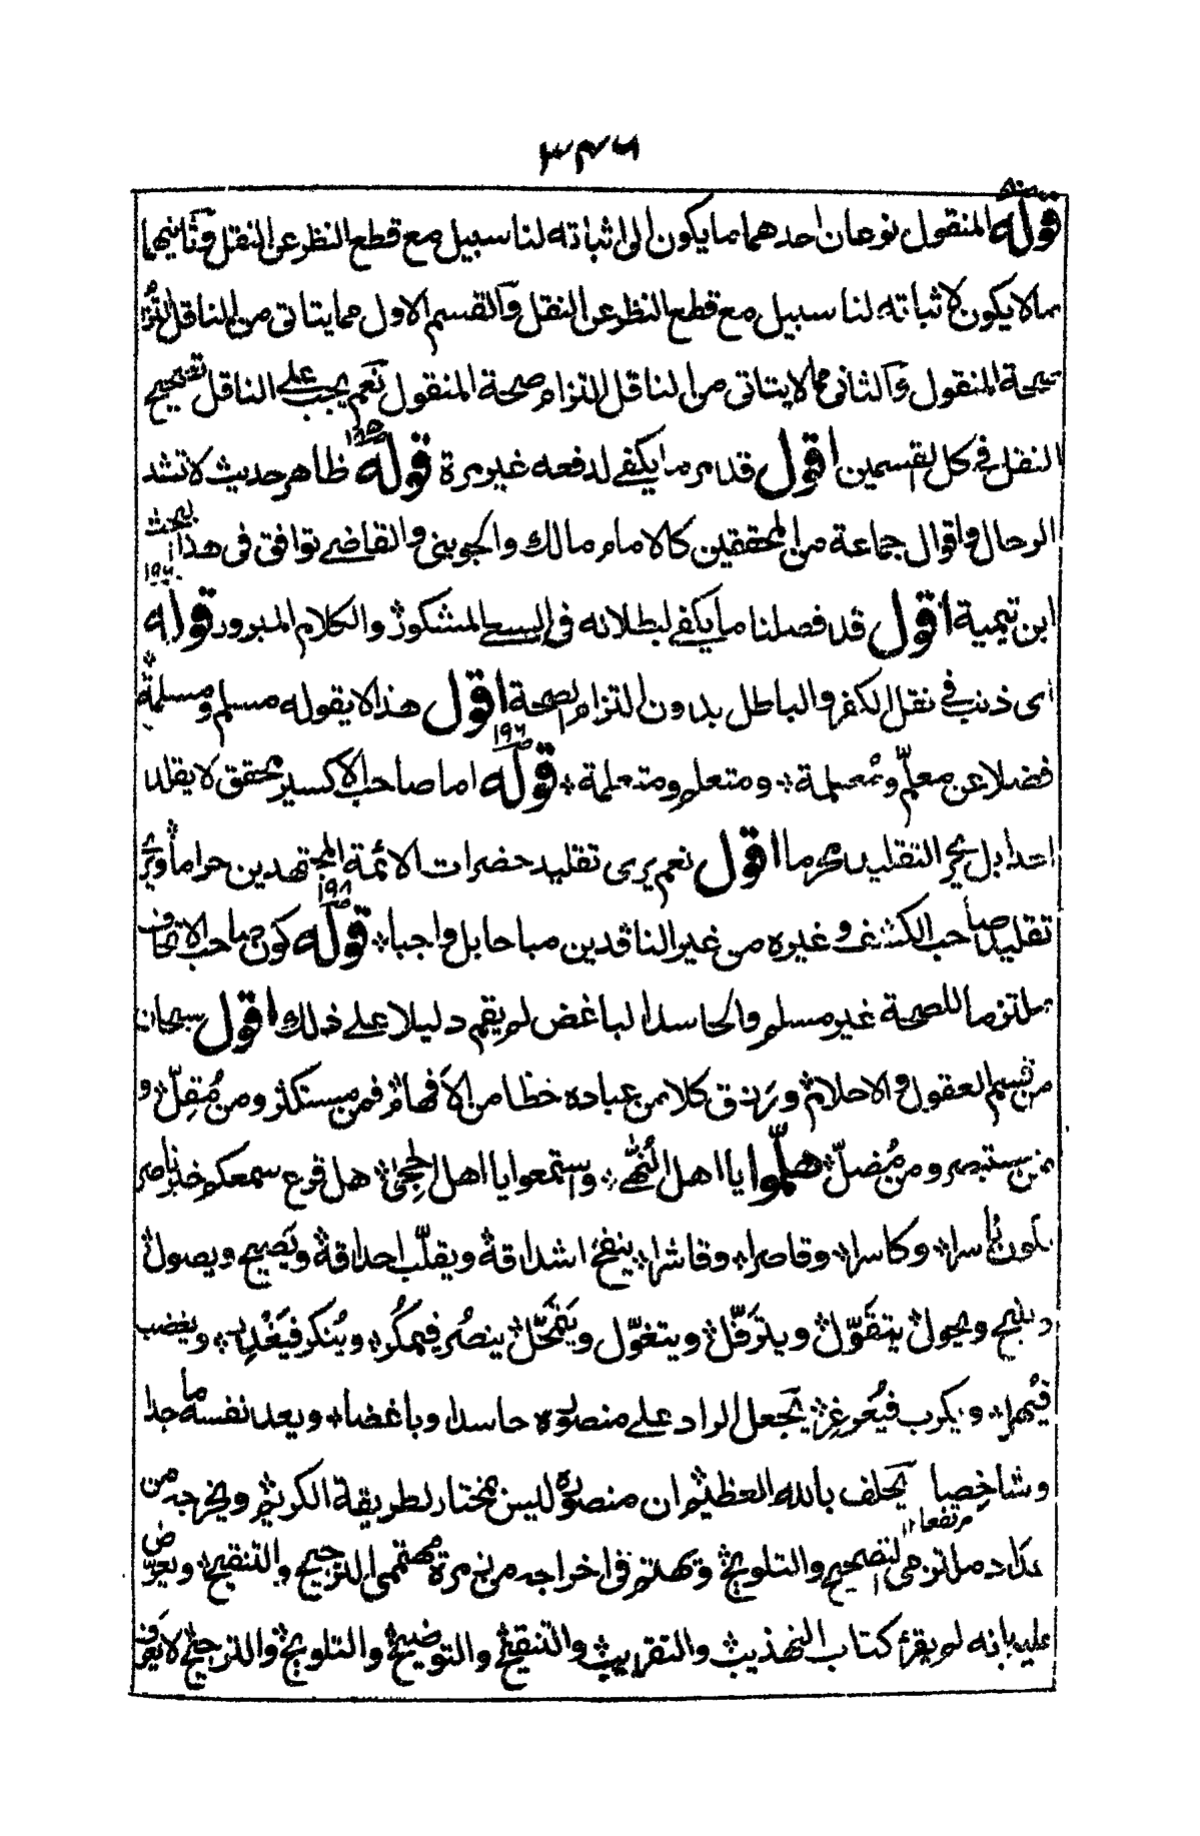 ٣٤٦
قوله المنقول نوعان احدهما ما يكون الى اثباته لنا سبيل مع قطع النظر عن النقل وثانيهما
ما لا يكون لاثباته لنا سبيل مع قطع النظر عن النقل والقسم الاول مما يتاتى من الناقل التزام
صحة المنقول والثانى مما لا يتاتى من الناقل التزام صحة المنقول نعم يجب على الناقل تصحيح
النقل فى كل القسمين اقول قد مر ما يكفى لدفعه غير مرة قوله ١٩٥ ظاهر حديث لا تشد
الرحال واقوال جماعة من المحققين كالامام مالك والجوينى والقاضى توافق فى هذا البحث
ابن تيمية اقول قد فصلنا ما يكفى لبطلانه فى السعى المشكور والكلام المبرور قوله ١٩٦
اى ذنب فى نقل الكفر والباطل بدون التزام الصحة اقول هذا لا يقوله مسلم ومسلمة
فضلا عن معلّم ومعلمة ومتعلم ومتعلمة قوله ١٩٦ اما صاحب الاكسير محقق لا يقلد
احدا بل يرى التقليد محرما اقول نعم يرى تقليد حضرات الائمة المجتهدين حراما ويرى
تقليد صاحب الكشف وغيره من غير الناقدين مباحا بل واجبا قوله ١٩٨ كون صاحب الاتحاف
ملتزما للصحة غير مسلم والحاسد الباغض لم يقم دليلا على ذلك اقول سبحان
من قسم العقول والاحلام ورزق كلا من عباده حظا من الافهام فمن مستكثر ومن مُقِلّ و
من مستبصر ومن مُضلّ هلمّوا يا اهل النُّهٰى واستمعوا يا اهل الحِجٰى هل قرع سمعكم خبر ناصر
يكون ناسرا وكاسرا وقاصرا وقاشرا ينفخ اشداقه ويقلّب احداقه ويَصيح ويصول
ويجول يتقَوّل ويترَفّل ويتغوّل ويَتمَحّل ينصُر فيمكُر ويُنكر فيَغْدِر ويغضب
ويكرب فيُغرغِر يَجعل الراد على منصوره حاسدا وباغضا ويعد نفسه ماجدا
وشاخِصا مرتفعا١٢ يَحلف بالله العظيم ان منصوره ليس بمختار لطريقة الكريم ويخرجه من
عداد ملتزمى التصحيح والتلويح ويهتم فى اخراجه من زمرة مهتممى الترجيح والتنقيح ويعرّض
عليه بانه لم يقرء كتاب التهذيب والتقريب والتنقيح والتوضيح والتلويح والترجيح لا يعرف